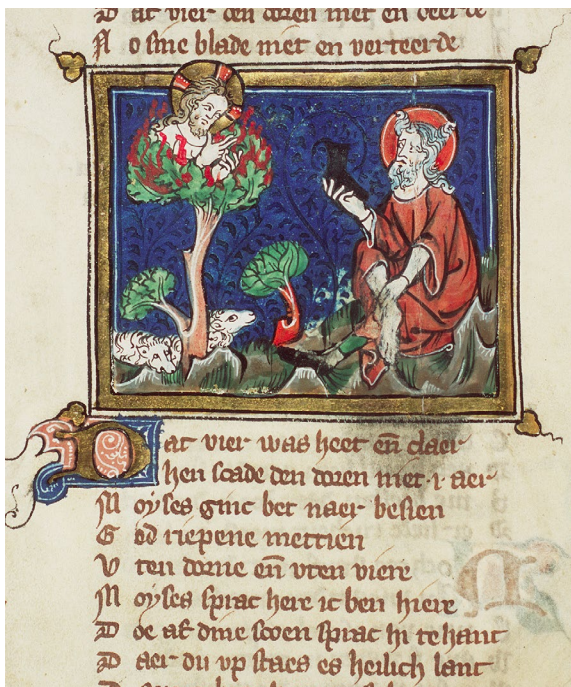 D at vier den doren niet en deerde
N o sine blade niet en verteerde
D at vier was heet eñ claer
hen scade den doren niet ·i· aer
M oyses ginc bet naer besien
G od riepene mettien
U ten dorne eñ vten viere
M oyses sprac here ic ben hiere
D oe af dine scoen sprac hi te hant
D aer du vp staes es heilich lant